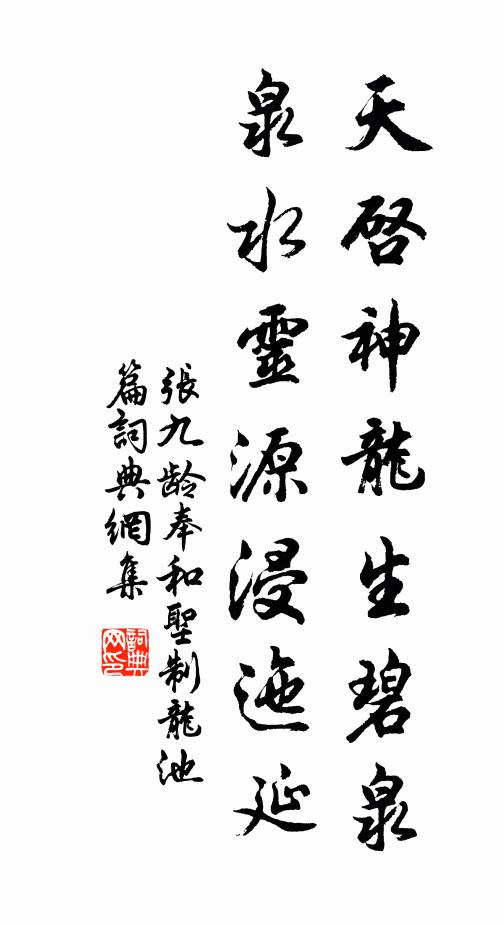 天啓神龍生碧泉
泉水靈源浸迤延
張九龄奉和聖制龍池
篇詞典網集
詞典
网印